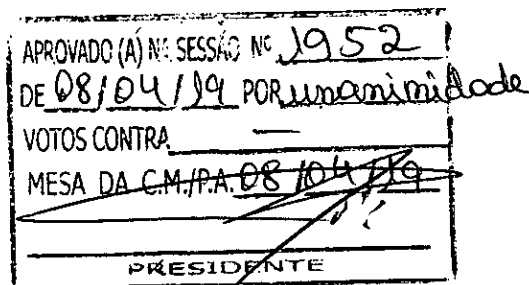 APROVADO (A) NA SESSÃO Nº 1952
DE 08/04/19 POR unanimidade
VOTOS CONTRA —
MESA DA C.M./P.A. 08/04/19
PRESIDENTE